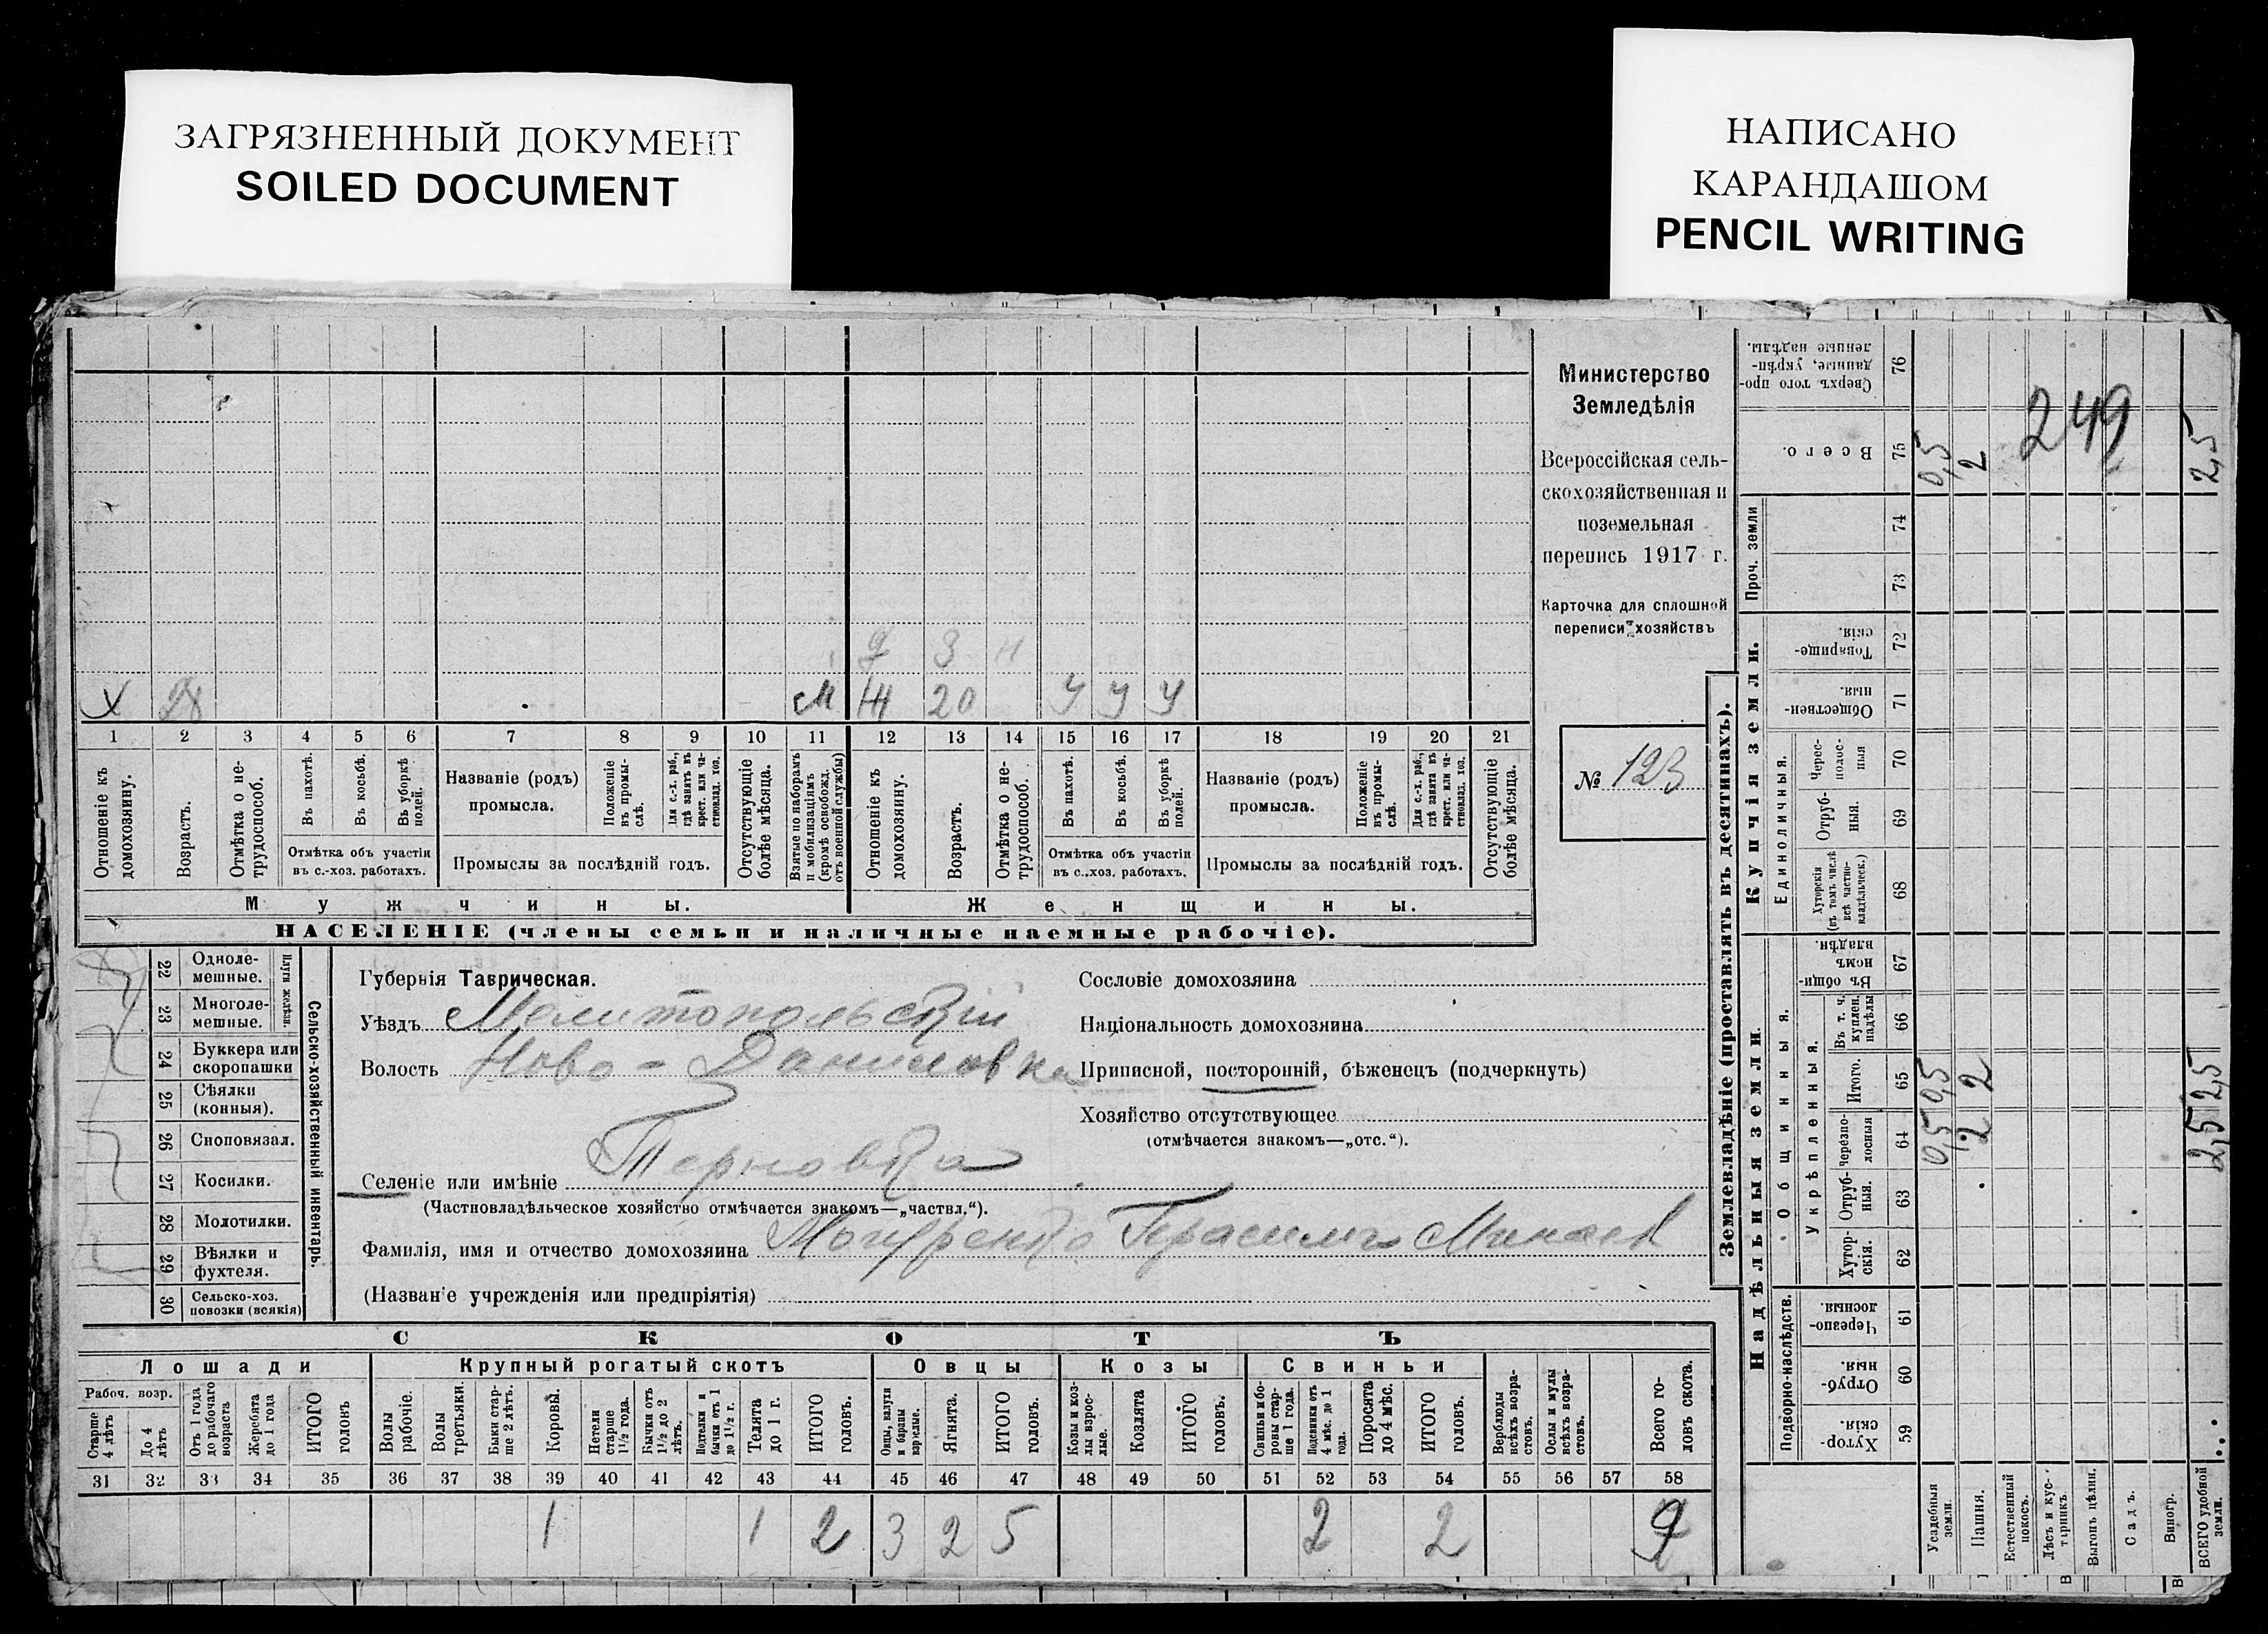 ЗАГРЯЗНЕННЫЙ ДОКУМЕНТ
SOILED DOCUMENT
НАПИСАНО
КАРАНДАШОМ
PENCIL WRITING
Министерство
Земледѣлія
Всероссійская сель-
скохозяйственная и
поземельная
перепись 1917 г.
Карточка для сплошной
переписи хозяйствъ
№ 123
д 3 н
х М Ж 20 У У У
1 2 3 4 5 6 7 8 9 10 11 12 13 14 15 16 17 18 19 20 21
Отношеніе къ домохозяину.
Возрастъ.
Отмѣтка о не-трудоспособ.
Въ пахотѣ.
Въ косьбѣ.
Въ уборкѣ полей.
Отмѣтка объ участіи
въ с.-хоз. работахъ.
Названіе (родъ)
промысла.
Положеніе въ промы-слѣ.
Для с.-х. раб., гдѣ занятъ въ крест. или ча-стновлад. хоз.
Промыслы за послѣдній годъ.
Отсутствующіе болѣе мѣсяца.
Взятые по наборамъ и мобилизаціямъ (кромѣ освобожд. отъ военной службы)
Отношеніе къ домохозяину.
Возрастъ.
Отмѣтка о не-трудоспособ.
Въ пахотѣ.
Въ косьбѣ.
Въ уборкѣ полей.
Отмѣтка объ участіи
въ с.-хоз. работахъ.
Названіе (родъ)
промысла.
Положеніе въ промы-слѣ.
Для с.-х. раб., гдѣ занята въ крест. или ча-стновлад. хоз.
Промыслы за послѣдній годъ.
Отсутствующіе болѣе мѣсяца.
Мужчины. Женщины.
НАСЕЛЕНІЕ (члены семьи и наличные наемные рабочіе).
22 Одноле-мешные.
23 Многоле-мешные.
Плуги желѣзн.
24 Буккера или скоропашки
25 Сѣялки (конныя).
26 Сноповязал.
27 Косилки.
28 Молотилки.
29 Вѣялки и фухтеля.
30 Сельско-хоз. повозки (всякія)
Сельско-хозяйственный инвентарь.
Губернія Таврическая.
Уѣздъ Мелитопольскій
Волость Ново-Даниловка
Терновка
Селеніе или имѣніе
(Частновладѣльческое хозяйство отмѣчается знакомъ—„частвл.“).
Фамилія, имя и отчество домохозяина Герасимъ
(Названіе учрежденія или предпріятія)
Сословіе домохозяина
Національность домохозяина
Приписной, посторонній, бѣженецъ (подчеркнуть)
Хозяйство отсутствующее
(отмѣчается знакомъ—„отс.“).
СКОТЪ
Лошади Крупный рогатый скотъ Овцы Козы Свиньи
Рабоч. возр.
Старше 4 лѣтъ
До 4 лѣтъ
Отъ 1 года до рабочаго возраста
Жеребята до 1 года
ИТОГО головъ
Волы рабочіе.
Волы третьяки.
Быки стар-ше 2 лѣтъ.
Коровы.
Нетели старше 1½ года.
Бычки отъ 1½ до 2 лѣтъ.
Подтелки и бычки отъ 1 до 1½ г.
Телята до 1 г.
ИТОГО головъ.
Овцы, валухи и бараны взрослые.
Ягнята.
ИТОГО головъ.
Козы и коз-лы взрос-лые.
Козлята
ИТОГО головъ.
Свиньи и бо-ровы стар-ше 1 года.
Подсвинки отъ 4 мѣс. до 1 года.
Поросята до 4 мѣс.
ИТОГО головъ.
Верблюды всѣхъ возра-стовъ.
Ослы и мулы всѣхъ возра-стовъ.
Всего го-ловъ скота.
31 32 33 34 35 36 37 38 39 40 41 42 43 44 45 46 47 48 49 50 51 52 53 54 55 56 57 58
1 1 2 3 2 5 2 2 9
Землевладѣніе (проставлять въ десятинахъ).
Надѣльныя земли.
Купчія земли.
Проч. земли
Подворно-наслѣдств.
Общинныя.
Укрѣпленныя.
Единоличныя.
Хутор-скія. 59
Отруб-ныя. 60
Черезпо-лосныя. 61
Хутор-скія. 62
Отруб-ныя. 63
Черезпо-лосныя 64
Итого. 65
Въ т. ч. куплен. надѣлы 66
Въ общи-номъ владѣн. 67
Хуторскія (въ томъ числѣ всѣ частно-владѣльческ.) 68
Отруб-ныя. 69
Черес-полос-ныя 70
Обществен-ныя. 71
Товарище-скія. 72
73
74
Всего. 75
Сверхъ того про-данные, укрѣп-ленные надѣлы. 76
Усадебныя земли. 0,5 0,5 0,5
Пашня. 2 2 2
Естественный покосъ.
Лѣсъ и кус-тарникъ
Выгонъ цѣлин.
Садъ.
Виногр.
ВСЕГО удобной земли. 2,5 2,5 2,5
249